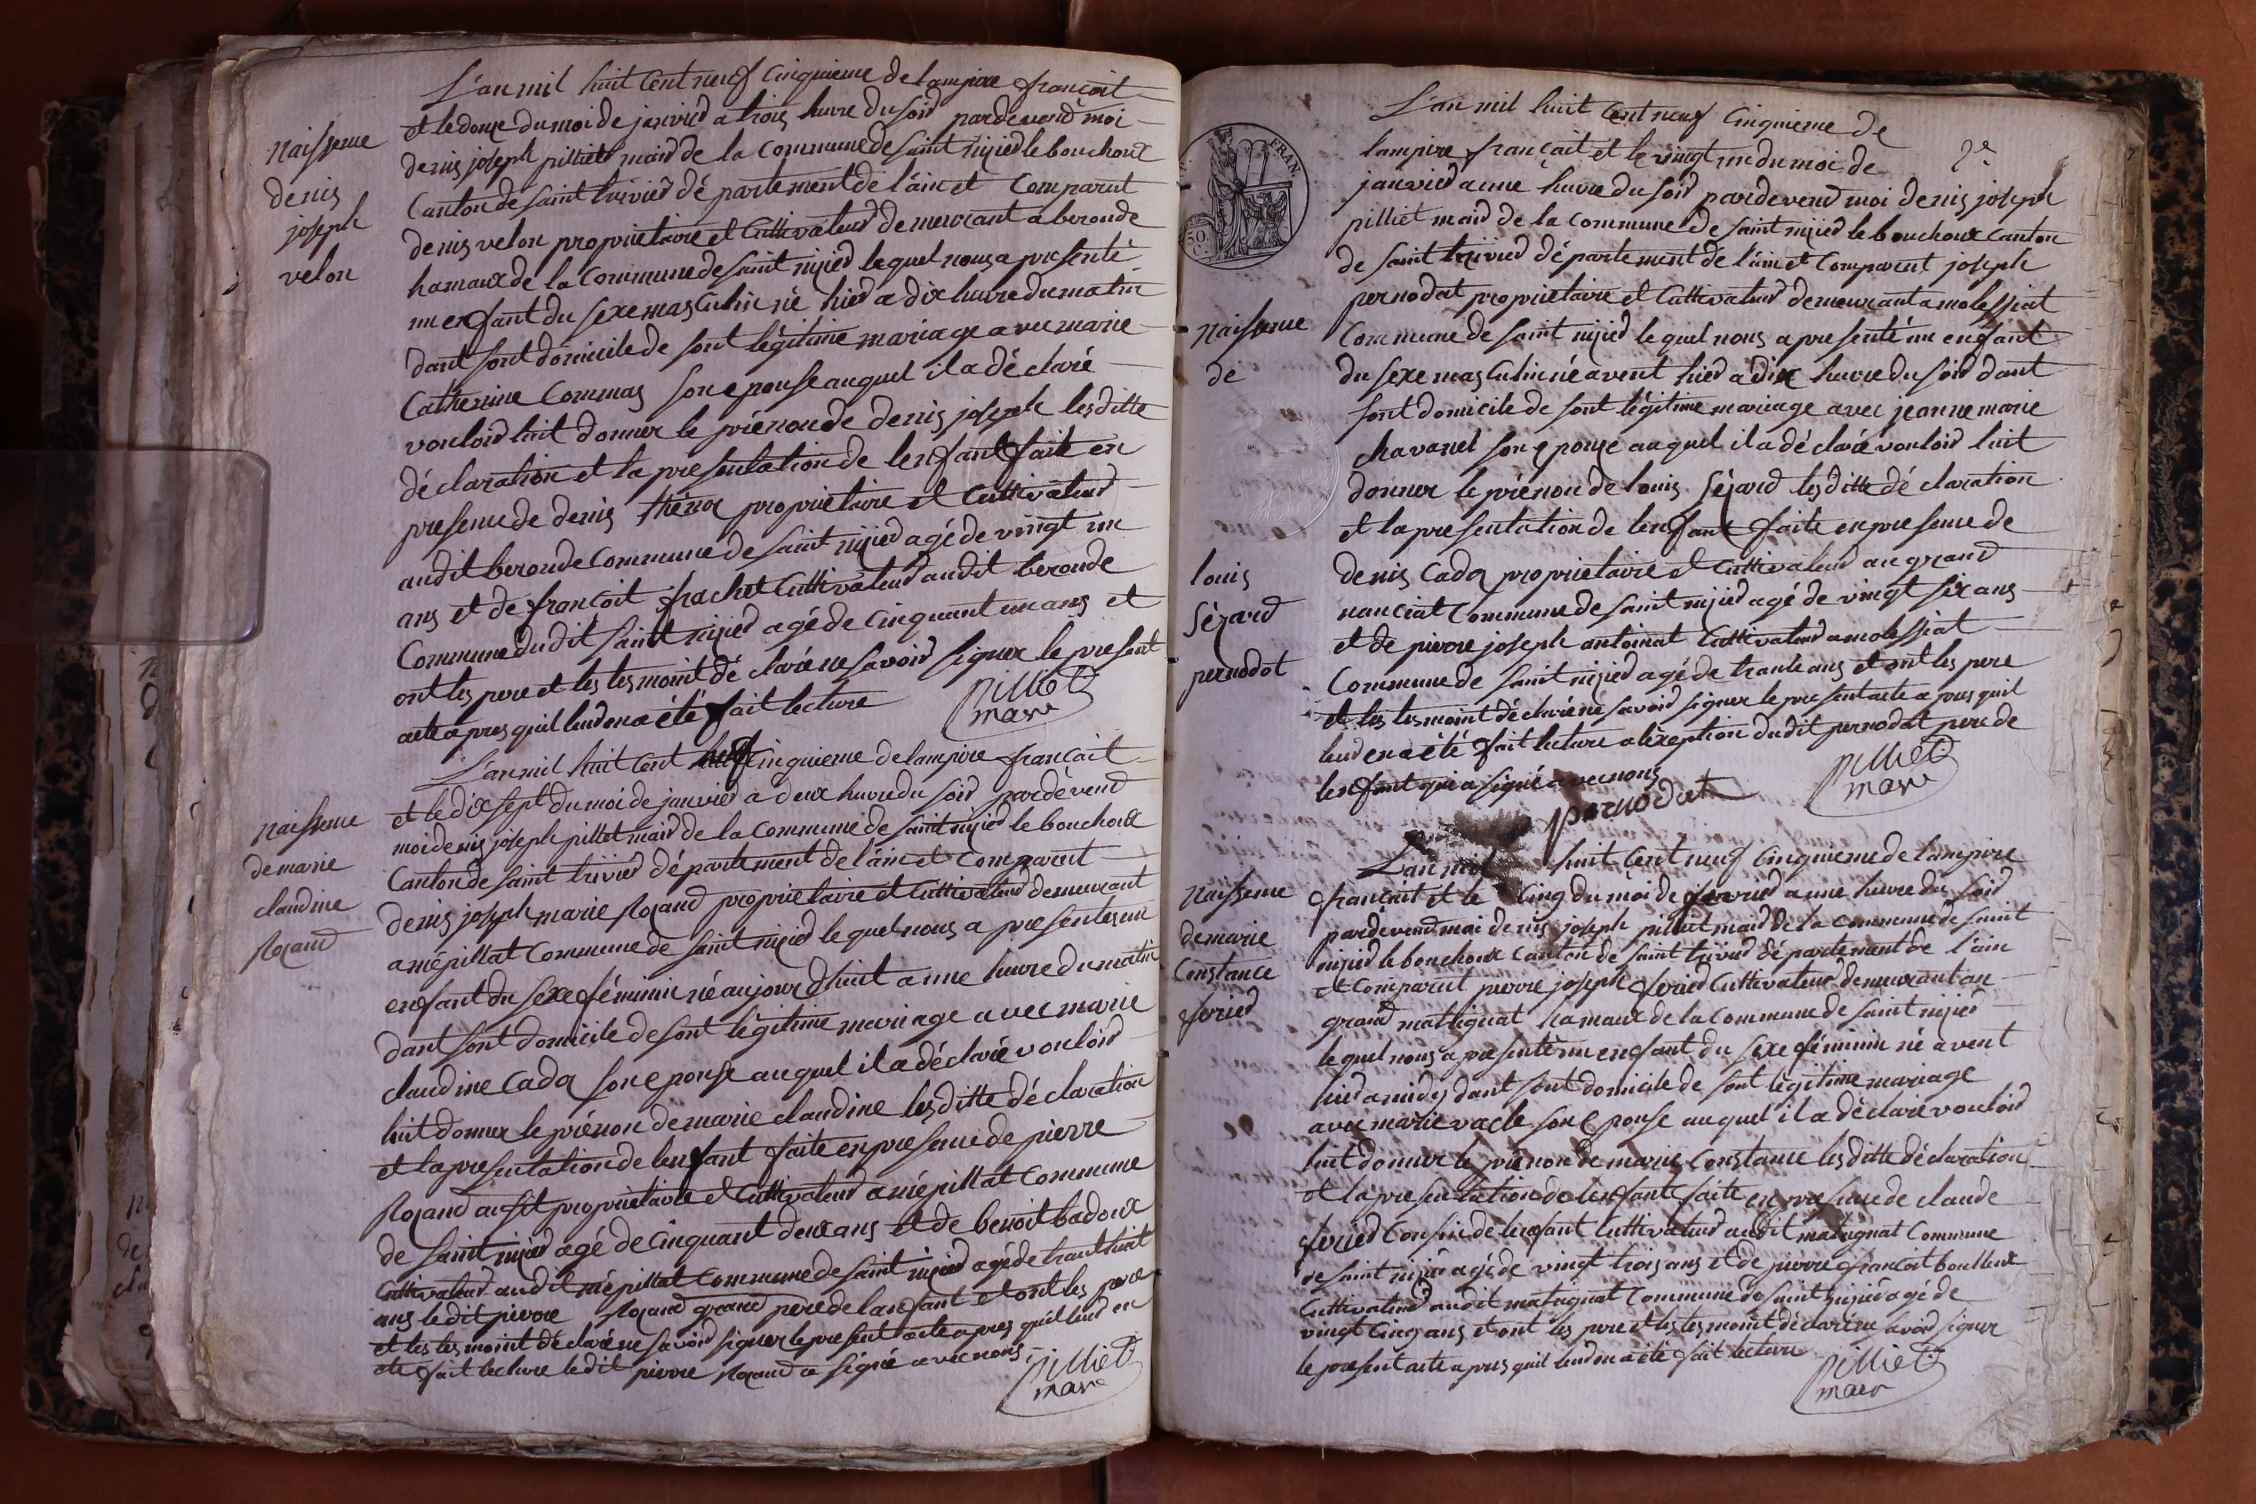 L'an mil huit Cent neuf Cinquieme de lampire françoit
et le douze du moi de janvied a trois huire du soid pardevend moi
naissense
denis joseph pilliet maid de la Commune de saint nijied le bouchoux
denis
Canton de saint trivied dé partement de l'ain et Comparut
joseph
denis velon proprietaire et Cultivateud demeurant a beronde
velon
hamaux de la Commune de saint nijied lequel nous a presenté
un enfant du sexe masculin né hied a dix huire du matin
dant sont domicile de sont légitime mariage avec marie
Catherine Commas son epouse auquel il a déclaré
vouloid luit donner le prénon de denis joseph lesditte
déclaration et la presentation de lenfant faite en
presense de denis proprietaire et Cultivateud
audit beronde Commune de saint nijied agé de vingt un
ans et de françoit frachet Cultivateud audit beronde
Commune dudit saint nijied agé de Cinquant un ans et
ont les pere et les tesmoint dé claré ne savoid signer le present
acte apres quil leud en a été fait lecture
Pilliet
mare
L'an mil huit Cent neuf Cinquieme de lampire françait
et le dix sept du moi de janvied a deux huire du soid pardévend
naissense
moi denis joseph pilliet maid de la Commune de saint nijied le bouchoux
de marie
Canton de saint trivied dé partement de l'ain et Comparut
claudine
denis joseph marie Rozand proprietaire et Cultivateud demeurant
Rozand
a mépillat Commune de saint nijied lequel nous a presenté un
enfant du sexe féminin né aujourdhuit a une huire du matin
dant sont domicile de sont légitime mariage avec marie
claudine Cada son epouse auquel il a déclaré vouloid
luit donner le prénon de marie claudine lesditte déclaration
et la presentation de lenfant faite en presense de pierre
Rozand ausit proprietaire et Cultivateud a mépillat Commune
de saint nijied agé de Cinquant deux ans et de benoit badoux
Cultivateud audit mépillat Commune de saint nijied agé de trant huit
ans ledit pierre Rozand grand pere de lanfant et ont les pere
et les tesmoint déclaré ne savoid signer le present acte apres quil leud en
ete fait lecture ledit pierre Rozand a signé avec nous
Pilliet
mare
L'an mil huit Cent neuf Cinquieme de
lampire françait et le vingt un du moi de
2e
FRAN.
janvied a une huire du soid pardevend moi denis joseph
pilliet maid de la Commune de saint nijied le bouchoux Canton
de saint trivied dé partement de l'ain et Comparut joseph
pernodat proprietaire et Cultivateud demeurant a molessiat
naissense
Commune de saint nijied lequel nous a presenté un enfant
de
du sexe masculin né avent hied a dix huire du soid dant
sont domicile de sont légitime mariage avec jeanne marie
chavanel son epouse auquel il a déclaré vouloid luit
donner le prénon de louis Sézard lesditte déclaration
et la presentation de lenfant faite en presense de
louis
denis Cada proprietaire et Cultivateud au grand
Sézard
nanciat Commune de saint nijied agé de vingt six ans
et de pierre joseph antoinat Cultivateud a molessiat
pernodot
Commune de saint nijied agé de trante ans et ont les pere
et les tesmoint déclaré ne savoid signer le present acte apres quil
leud en a été fait lecture a lexeption dudit pernodat pere de
lenfant qui a signé avec nous
pernodat
Pilliet
mare
L'an mil huit Cent neuf Cinquieme de lampire
naissense
françait et le Cinq du moi de fevried a une huire du soid
de marie
pardevend moi denis joseph pilliet maid de la Commune de saint
nijied le bouchoux Canton de saint trivied dé partement de l'ain
Constance
et Comparut pierre joseph feried Cultivateud demeurant au
feried
grand matignat hamaux de la Commune de saint nijied
lequel nous a presenté un enfant du sexe féminin né avent
hied a midy dant sont domicile de sont légitime mariage
avec marie vacle son epouse auquel il a déclaré vouloid
luit donner le prénon de marie Constance lesditte déclaration
et la presentation de lenfant faite en presense de claude
feried Consin de lenfant Cultivateud audit matignat Commune
de saint nijied agé de vingt trois ans et de pierre françoit boulleux
Cultivateud audit matignat Commune de saint nijied agé de
vingt Cinq ans et ont les pere et les tesmoint déclaré ne savoid signer
le present acte apres quil leud en a été fait lecture
Pilliet
maer